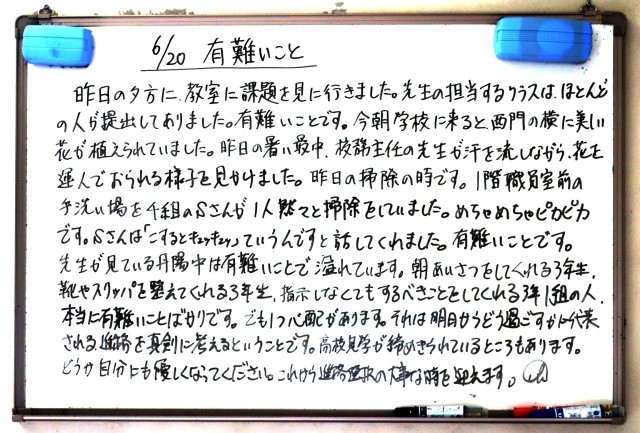 6/20 有難いこと
昨日の夕方に、教室に課題を見に行きました。先生の担当するクラスは、ほとんど
の人が提出してありました。有難いことです。今朝学校に来ると、西門の横に美しい
花が植えられていました。昨日の暑い最中、校務主任の先生が汗を流しながら、花を
運んでおられる様子を見かけました。昨日の掃除の時です。1階職員室前の
手洗い場を千組のSさんが1人黙々と掃除をしていました。めちゃめちゃピカピカ
です。Sさんは「こするとキュッキュッ」ていうんですと話してくれました。有難いことです。
先生が見ている丹陽中は有難いことで溢れています。朝あいさつをしてくれる3年生、
靴やスリッパを整えてくれる3年生、指示しなくてもするべきことをしてくれる3年1組の人、
本当に有難いことばかりです。でも1つ心配があります。それは明日からどう過ごすかに代表
される進路を真剣に考えるということです。高校見学が締めきられているところもあります。
どうか自分にも優しくなってください。これから進路選択の大事な時を迎えます。